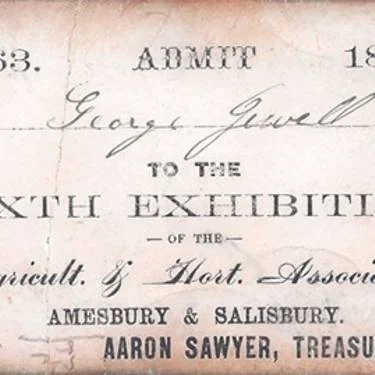 63. ADMIT 18
George Jewell
TO THE
XTH EXHIBITI
— OF THE —
gricult. & Hort. Associa
AMESBURY & SALISBURY.
AARON SAWYER, TREASU